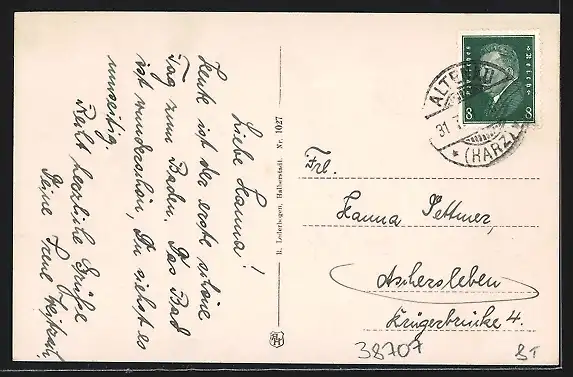 Liebe Hanna!
Heute ist der erste schöne
Tag zum Baden. Das Bad
ist wunderschön, Du siehst es
umseitig.
Recht herzliche Grüße
Deine Irene
R. Lederbogen, Halberstadt. Nr. 1027
Deutsches Reich
8 8
ALTENAU
31.7.
* (HARZ) *
Frl.
Hanna Pettmer,
Aschersleben
Krügerbrücke 4.
38707
BT